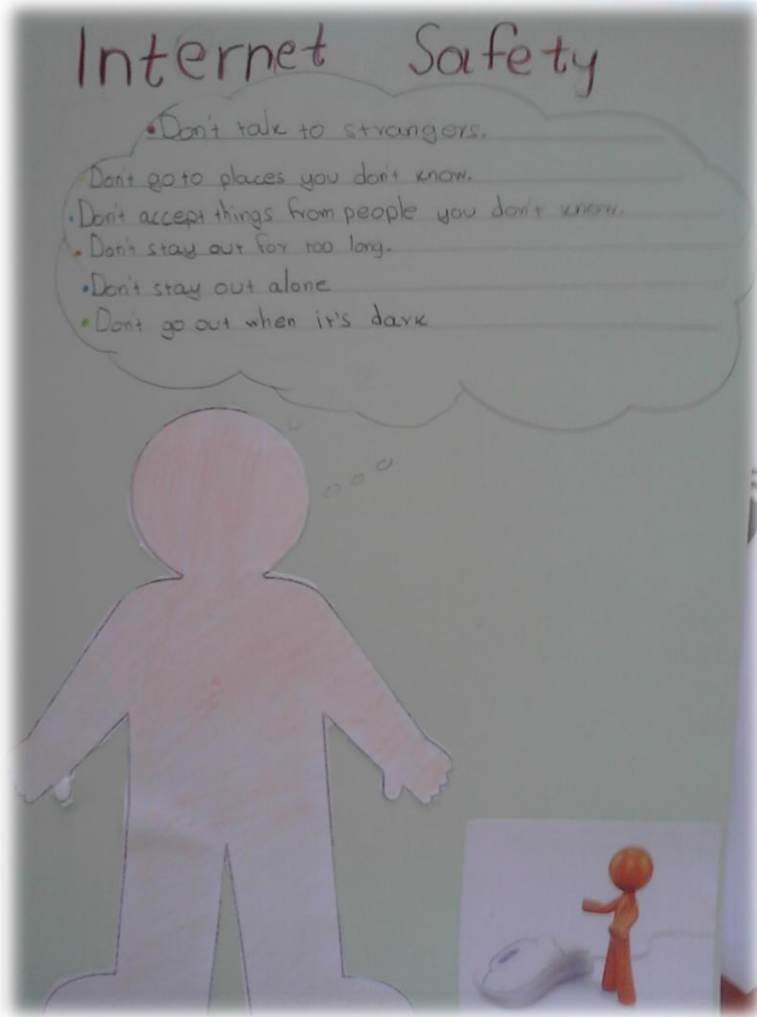 Internet Safety
•Don't talk to strangers.
•Don't go to places you don't know.
•Don't accept things from people you don't know.
•Don't stay out for too long.
•Don't stay out alone
•Don't go out when it's dark